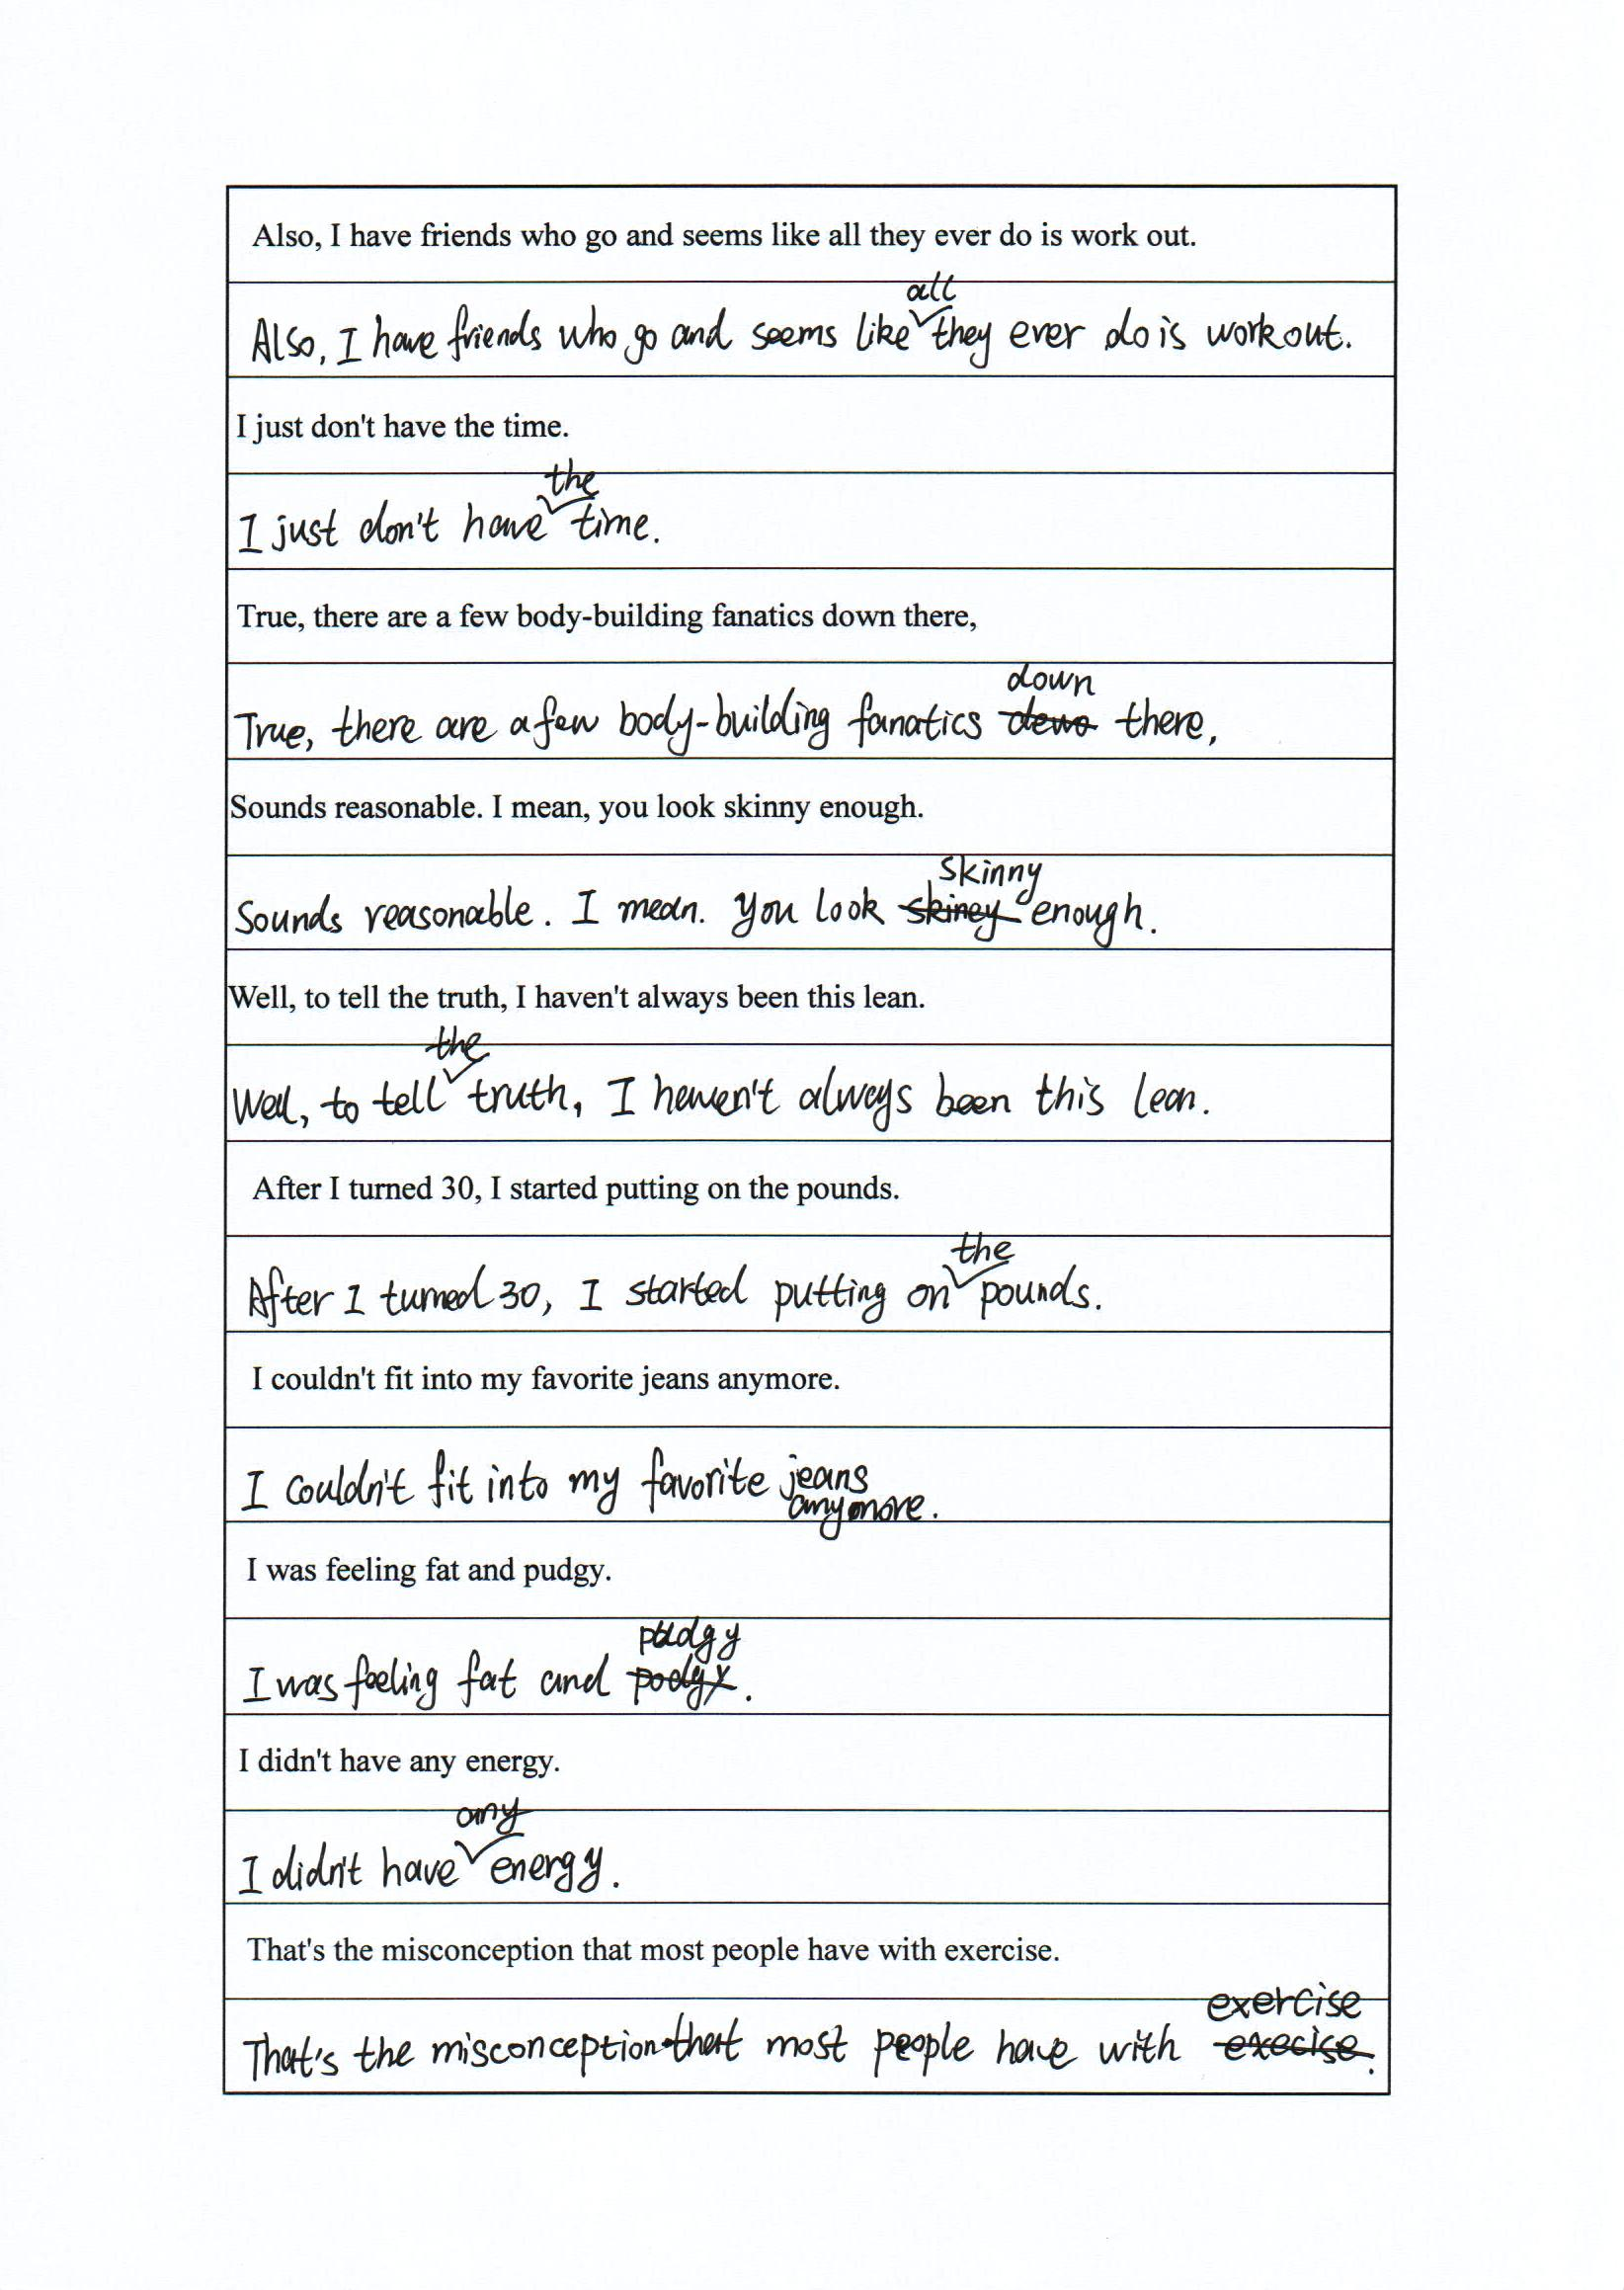 Also, I have friends who go and seems like all they ever do is work out.
Also, I have friends who go and seems like all they ever do is work out.
I just don't have the time.
I just don't have the time.
True, there are a few body-building fanatics down there,
True, there are a few body-building fanatics down there,
Sounds reasonable. I mean, you look skinny enough.
Sounds reasonable. I mean. you look skinny enough.
Well, to tell the truth, I haven't always been this lean.
Well, to tell the truth, I haven't always been this lean.
After I turned 30, I started putting on the pounds.
After I turned 30, I started putting on the pounds.
I couldn't fit into my favorite jeans anymore.
I couldn't fit into my favorite jeans
anymore.
I was feeling fat and pudgy.
I was feeling fat and pudgy.
I didn't have any energy.
I didn't have any energy.
That's the misconception that most people have with exercise.
That's the misconception that most people have with exercise.